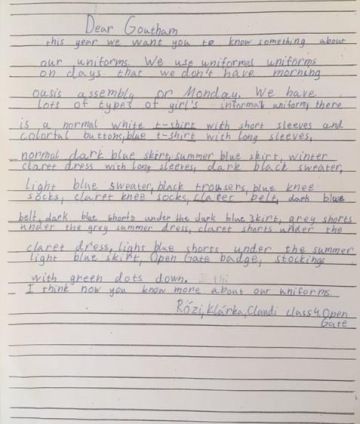 Dear Goutham
this year we want you to know something about
our uniforms. We use uniformal uniforms
on days that we don't have morning
oasis assembly or Monday. We have
lots of types of girl's informal uniform, there
is a normal white t-shirt with short sleeves and
colorful buttons, blue t-shirt with long sleeves,
normal dark blue skirt, summer blue skirt, winter
claret dress with long sleeves, dark black sweater,
light blue sweater, black trousers, blue knee
socks, claret knee socks, claret belt, dark blue
belt, dark blue shorts under the dark blue skirt, grey shorts
under the grey summer dress, claret shorts under the
claret dress, light blue shorts under the summer
light blue skirt, Open Gate badge, stockings
with green dots down.
I think now you know more about our uniforms
Rózi, Klárka, Claudi class 4 Open
Gate